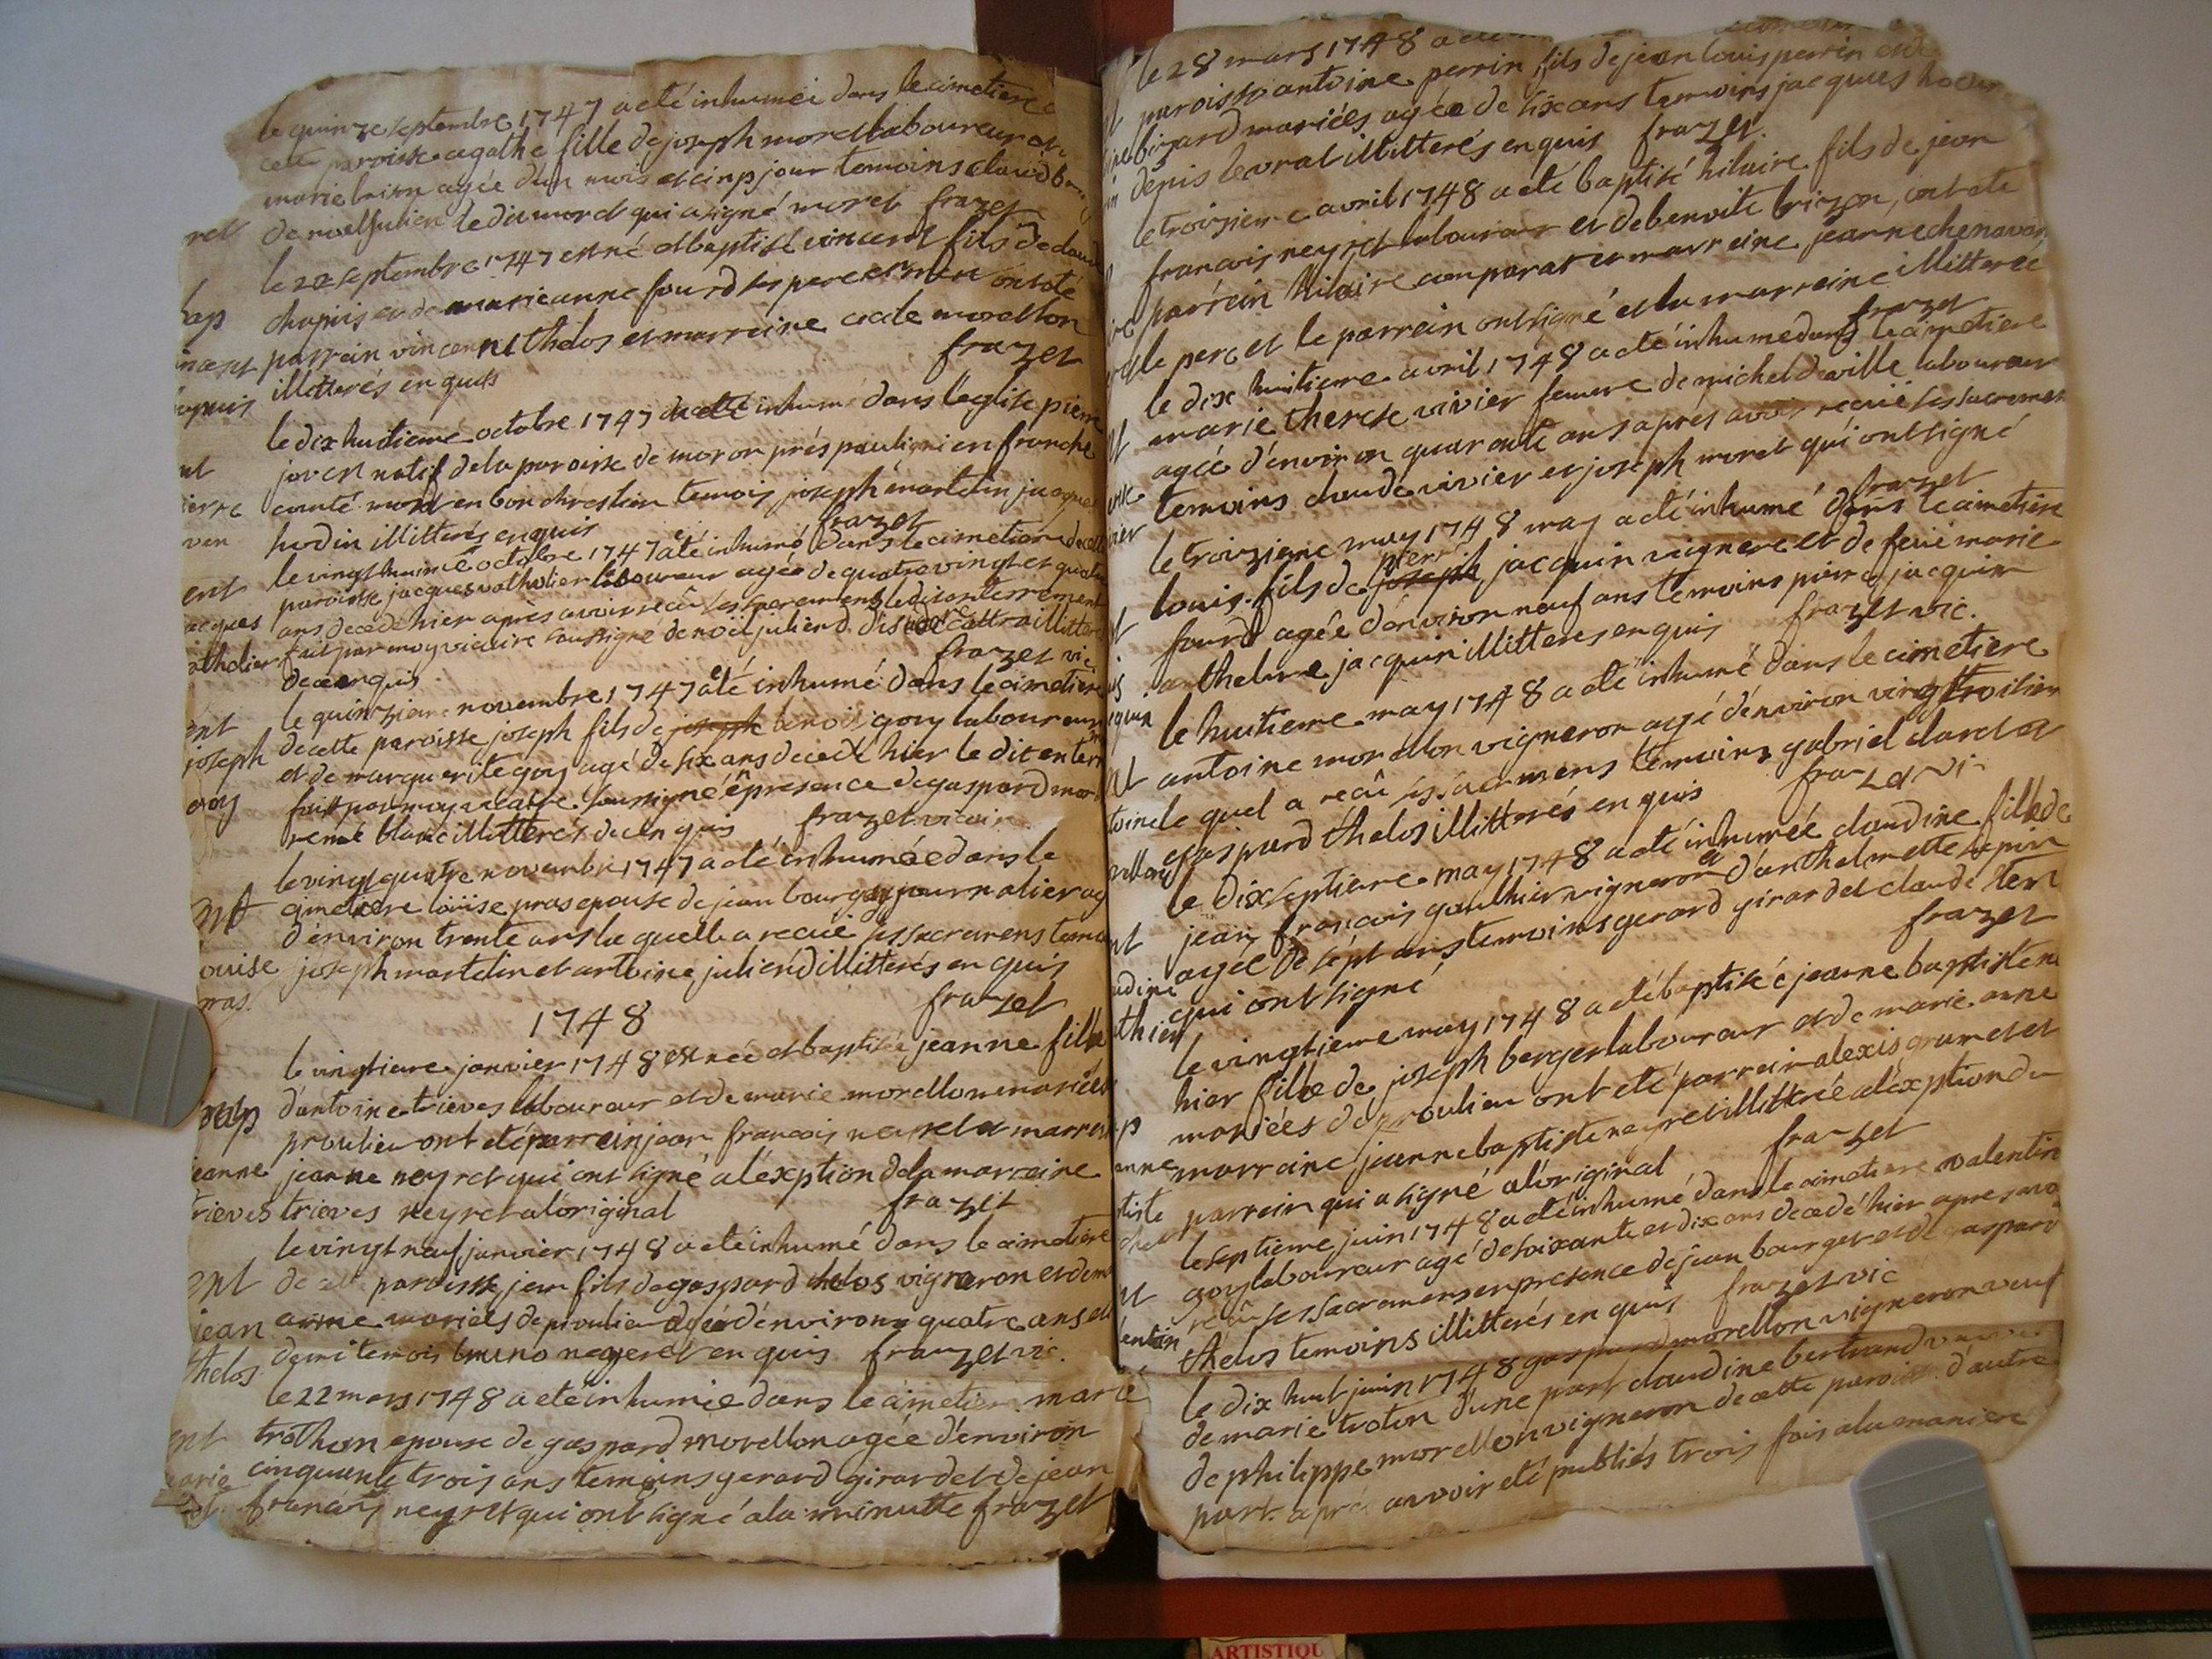 le quinze septembre 1747 a eté inhumeé dans le cimetiere
cette paroisse agathe fille de joseph moret laboureur et
marie brison agée d'un mois et cinp jour temoins claud
de noel julien ledit moret qui a signé moret frazet
ret
le 22 septembre 1747 est né et baptisé vincent fils de claud
bap chapuis et de marieanne fourd ses pere et mere ont eté
incent parrain vincennt thelos et marreine morellon
apuis illitterés enquis frazet
le dix huitieme octobre 1747 a eté inhumé dans l'eglise pierre
nt joven natif de la paroisse de moron prés pauligni en franche
ierre comté mort en bon chrestien temois joseph martelin jacques
ven hudin illitterés enquis frazet
le vingt huitie octobre 1747 a eté inhumé dans le cimetiere decette
ent paroisse jacques vathelier laboureur agée de quatre vingt et quatre
acques ans decedé hier aprés avoir reçû ses sacremens ledit enterrement
athelier fait par moy vicaire soussigné de noël julien d illitter
de ce enquis frazet vic
le quinzieme novembre 1747 a eté inhumé dans le cimetiere
ent decette paroisse joseph fils de joseph benoit goy laboureur
joseph et de marguerite goy agé de six ans decedé hier le dit enterr
goy fait par moy vicaire soussigné en presence de gaspard mor
remé blanc illitterés de ce enquis frazet vicair
le vingt quatre novembre 1747 a eté inhumée dans le
ent cimetiere loüise pras epouse de jean bourget journalier ag
d'environ trente ans la quelle a reçüe ses sacremens temo
ouise joseph martelin et antoine juliend illitterés enquis
pras. frazet
1748
le vingtieme janvier 1748 est née et baptisée jeanne fille
bap d'antoine trieves laboureur et de marie morellon mariées
proulieu ont eté parrein jean francois neyret et marrei
jeanne jeanne neyret qui ont signé a l'éxption de la marreine
trieves trieves neyret a l'original frazet
le vingt neuf janvier 1748 a eté inhumé dans le cimetiere
ent de cette paroisse jean fils de gaspard thelos vigneron et de m
jean anne mariées de proulieu agé d'environ quatre ans et
thelos demi temois bruno neyeret enquis frazet vic.
le 22 mars 1748 a eté inhumée dans le cimetiere marie
ent trothon epouse de gaspard morellon agée d'environ
marie cinquente trois ans temoins gerard girardet de jean
francois neyret qui ont signé a la minutte frazet
le 28 mars 1748 a eté
paroisse antoine perrin fils de jean louis perrin et de
bizard mariées agée de six ans temoins jacques
denis levrat illitterés enquis frazet.
le troizieme avril 1748 a eté baptisé hilaire fils de jean
francois neyret laboureur et de benoite brizon, ont eté
parrein hilaire comparat et marreine jeanne chenavar
le pere et le parrein ont signé et la marreine illitteree
frazet
le dix huitieme avril 1748 a eté inhumé dans le cimetiere
marie therese vivier femme de michel deville laboureur
agée d'environ quarante ans aprés avoir reçüe ses sacremen
temoins claude vivier et joseph moret qui ont signé
frazet
le troizieme may 1748 may a eté inhumé dans le cimetiere
louis fils de joseph pierre jacquin vigneret et de feüe marie
fourd agée d'environ neuf ans temoins pierre jacquin
anthelme jacquin illitteres enquis frazet vic.
le huitieme may 1748 a eté inhumé dans le cimetiere
antoine morellon vigneron agé d'environ vingt troisiem
le quel a reçû ses sacremens temoins gabriel claret et
gaspard thelos illitterés enquis frazet vi
le dix septieme may 1748 a eté inhumée claudine fille de
jean francois gauthier vigneron et d'anthelmette sapin
agée de sépt ans temoins gerard girardet claude
qui ont signé frazet
le vingtieme may 1748 a eté baptisée jeanne baptiste né
hier fille de joseph berger laboureur et de marie anne
mariées de proulieu ont eté parrein alexis grumet et
marreine jeanne baptiste neyret illittrée a l'éxption du
parrein qui a signé a l'original frazet
le septieme juin 1748 a eté inhumé dans le cimetiere valentin
goy laboureur agé de soixante et dix ans decedé hier apres avo
reçû ses sacremens en presence de jean bourget et de gaspard
thelos temoins illitterés enquis frazet vic
le dix huit juin 1748 gaspard morellon vigneron veuf
de marie troton d'une part claudine bertrand veuve
de philippe morellon vigneron de cette paroisse d'autre
part. aprés avoir eté publiés trois fois a la maniere
ARTISTIQU